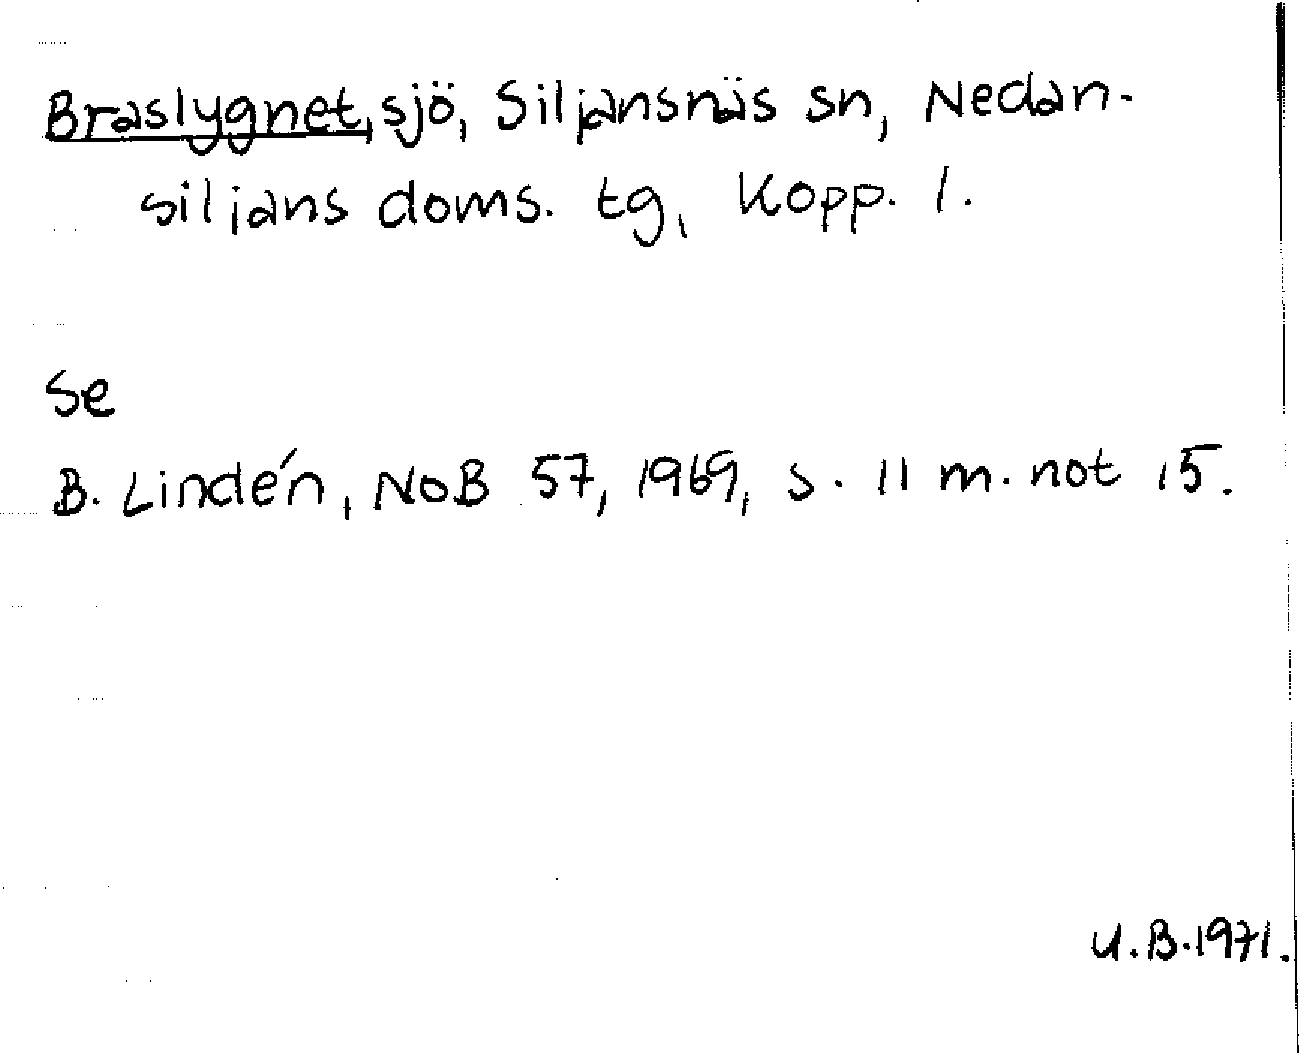 Braslygnet, sjö, Siljansnäs sn, Nedan-
siljans doms. tg, Kopp. l.
Se
B. Lindén, NoB 57, 1969, s. 11 m. not 15.
U.B.1971.